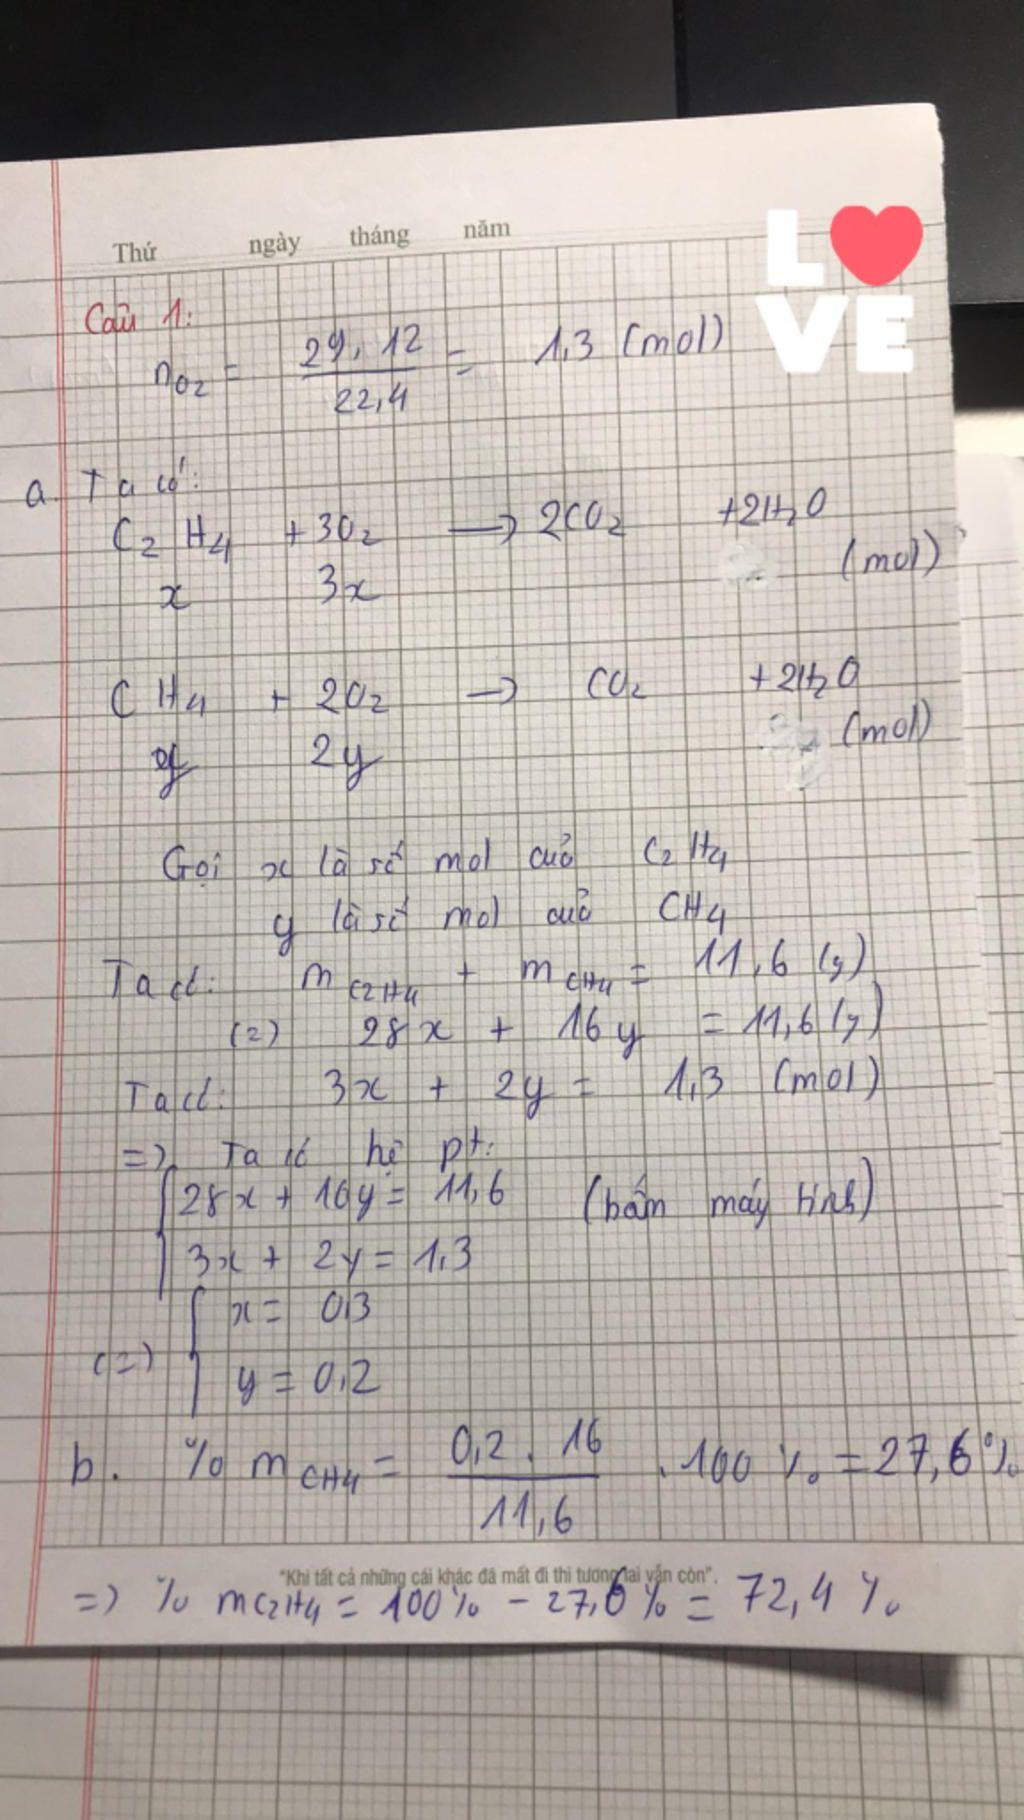 Thứ ngày tháng năm
LOVE
Câu 1:
nO2 = 29,12 / 22,4 = 1,3 (mol)
a. Ta có:
C2H4 + 3O2 → 2CO2 + 2H2O
x 3x (mol)
CH4 + 2O2 → CO2 + 2H2O
y 2y (mol)
Gọi x là số mol của C2H4
y là số mol của CH4
Ta có: mC2H4 + mCH4 = 11,6 (g)
(=) 28x + 16y = 11,6 (g)
Ta có: 3x + 2y = 1,3 (mol)
=> Ta có hệ pt:
28x + 16y = 11,6 (bấm máy tính)
3x + 2y = 1,3
x = 0,3
(=)
y = 0,2
b. % mCH4 = 0,2 . 16 / 11,6 . 100% = 27,6%
"Khi tất cả những cái khác đã mất đi thì tương lai vẫn còn".
=> % mC2H4 = 100% - 27,6% = 72,4%